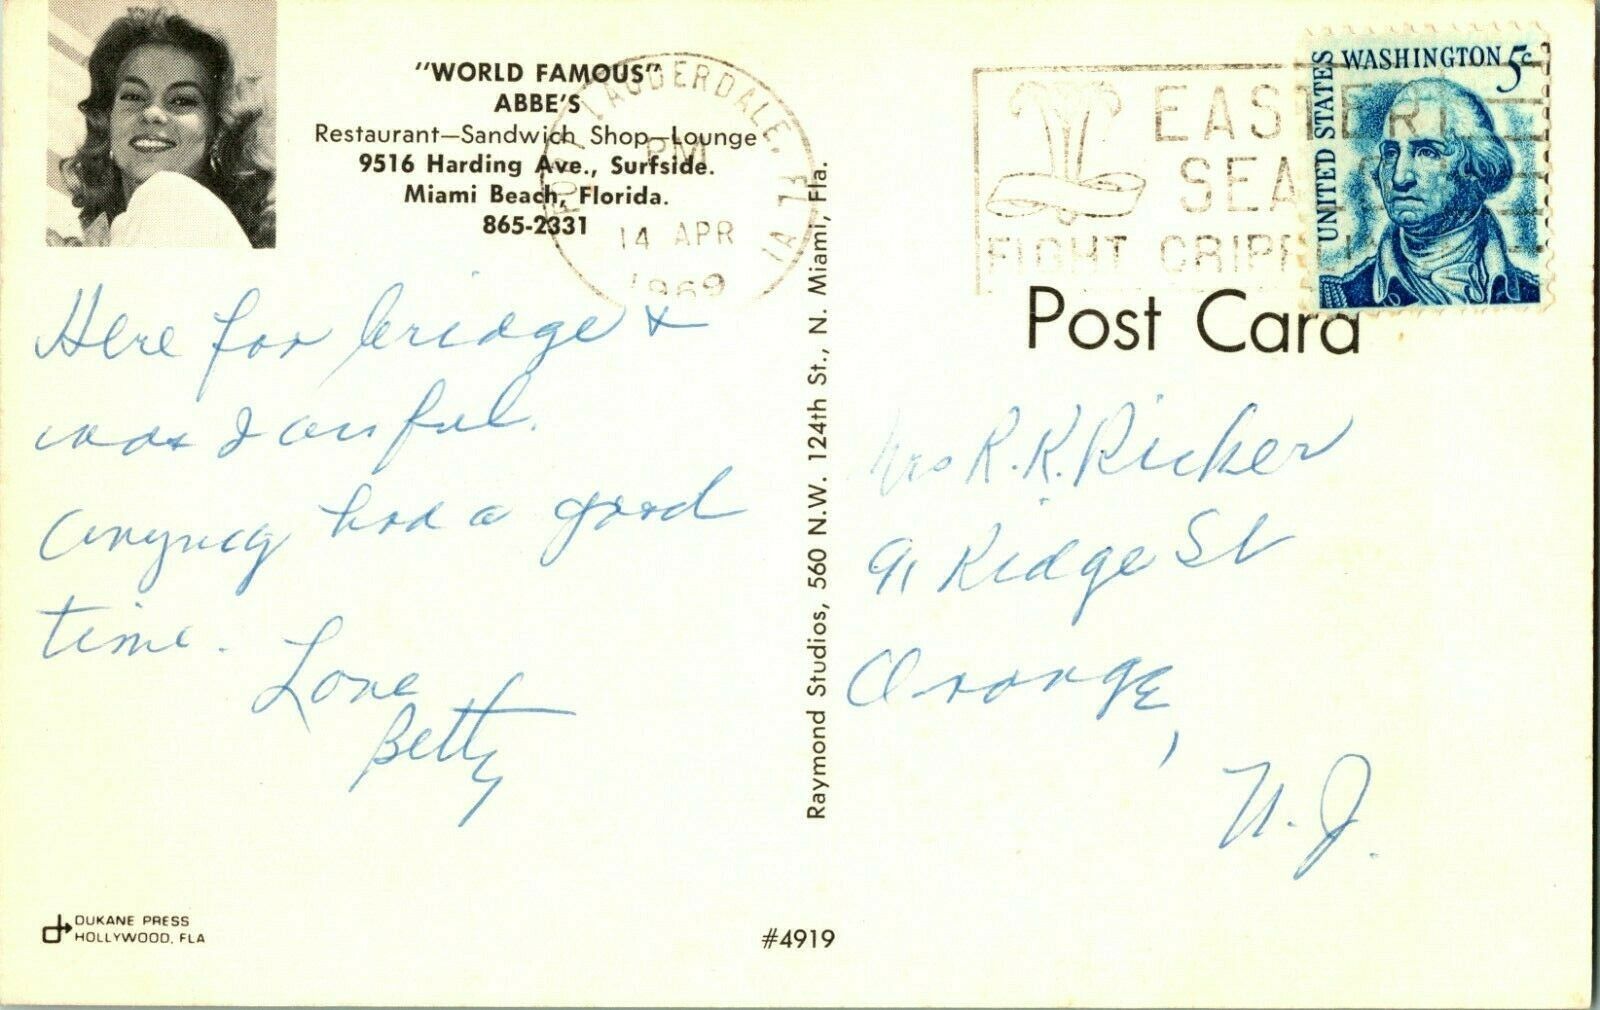 "WORLD FAMOUS"
ABBE'S
Restaurant—Sandwich Shop—Lounge
9516 Harding Ave., Surfside.
Miami Beach, Florida.
865-2331
FORT LAUDERDALE, FLA
PM
14 APR
1969
EASTER
SEA
FIGHT CRIPP
UNITED STATES
WASHINGTON 5c
Post Card
Here for bridge +
was I awful.
Anyway had a good
time.
Love
Betty
Mrs R. K. Ricker
91 Ridge St
Orange,
N. J.
Raymond Studios, 560 N.W. 124th St., N. Miami, Fla.
DUKANE PRESS
HOLLYWOOD, FLA
#4919